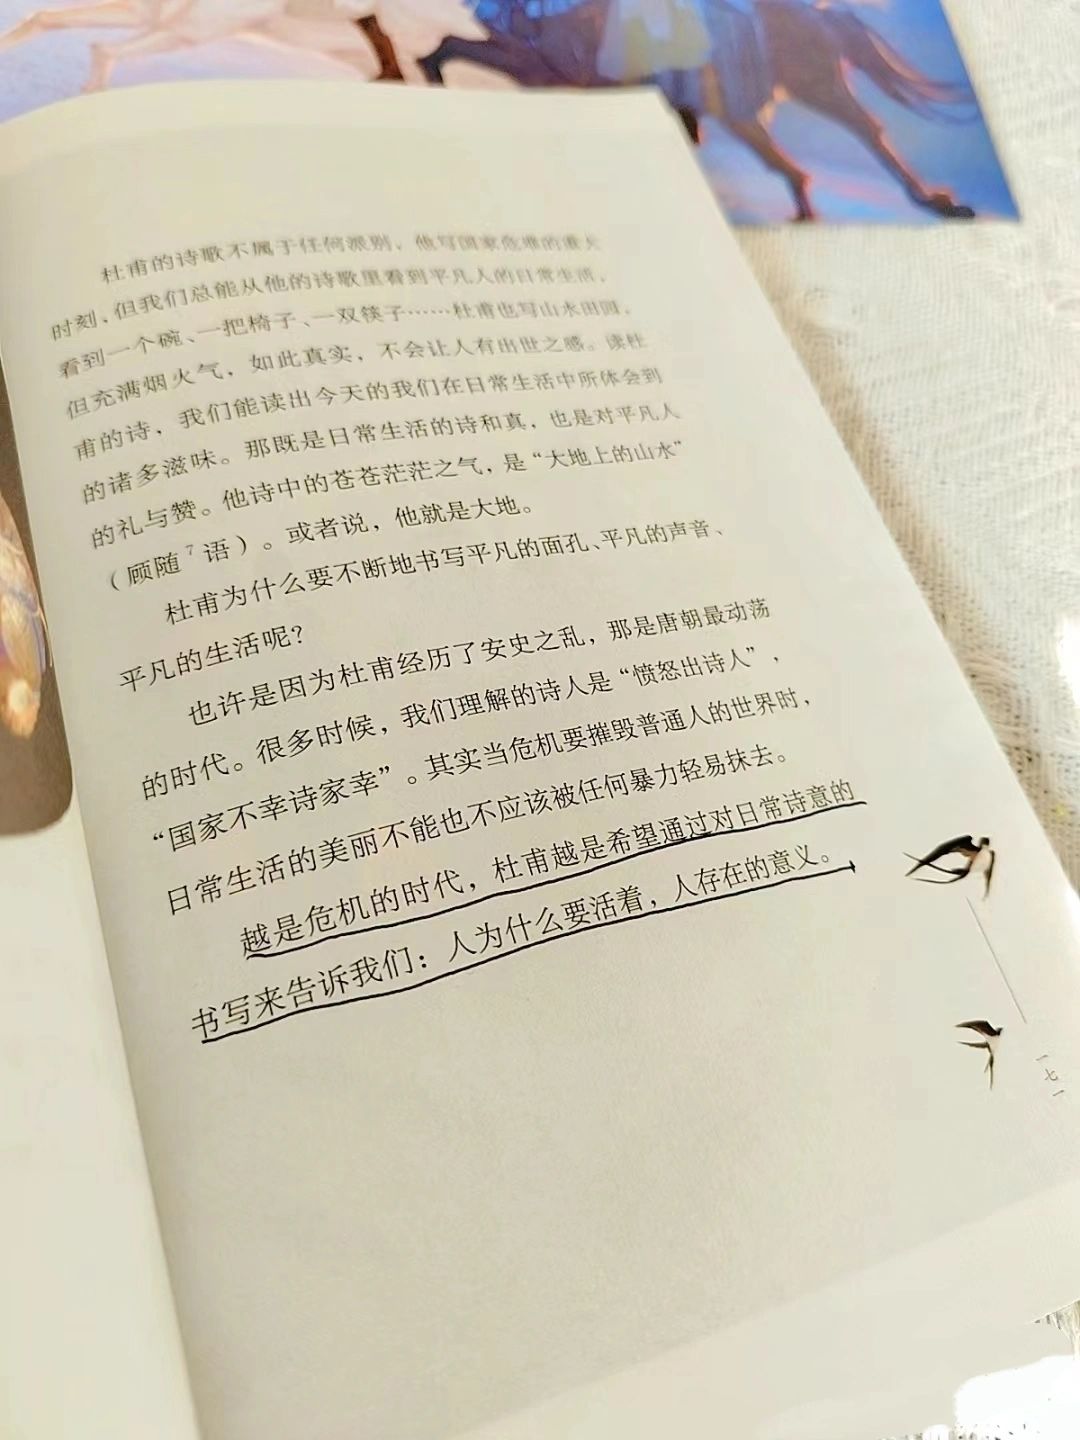 杜甫的诗歌不属于任何派别，他写国家危难的重大
时刻，但我们总能从他的诗歌里看到平凡人的日常生活，
看到一个碗、一把椅子、一双筷子……杜甫也写山水田园，
但充满烟火气，如此真实，不会让人有出世之感。读杜
甫的诗，我们能读出今天的我们在日常生活中所体会到
的诸多滋味。那既是日常生活的诗和真，也是对平凡人
的礼与赞。他诗中的苍苍茫茫之气，是“大地上的山水”
（顾随7语）。或者说，他就是大地。
杜甫为什么要不断地书写平凡的面孔、平凡的声音、
平凡的生活呢？
也许是因为杜甫经历了安史之乱，那是唐朝最动荡
的时代。很多时候，我们理解的诗人是“愤怒出诗人”，
“国家不幸诗家幸”。其实当危机要摧毁普通人的世界时，
日常生活的美丽不能也不应该被任何暴力轻易抹去。
越是危机的时代，杜甫越是希望通过对日常诗意的
书写来告诉我们：人为什么要活着，人存在的意义。
一七一